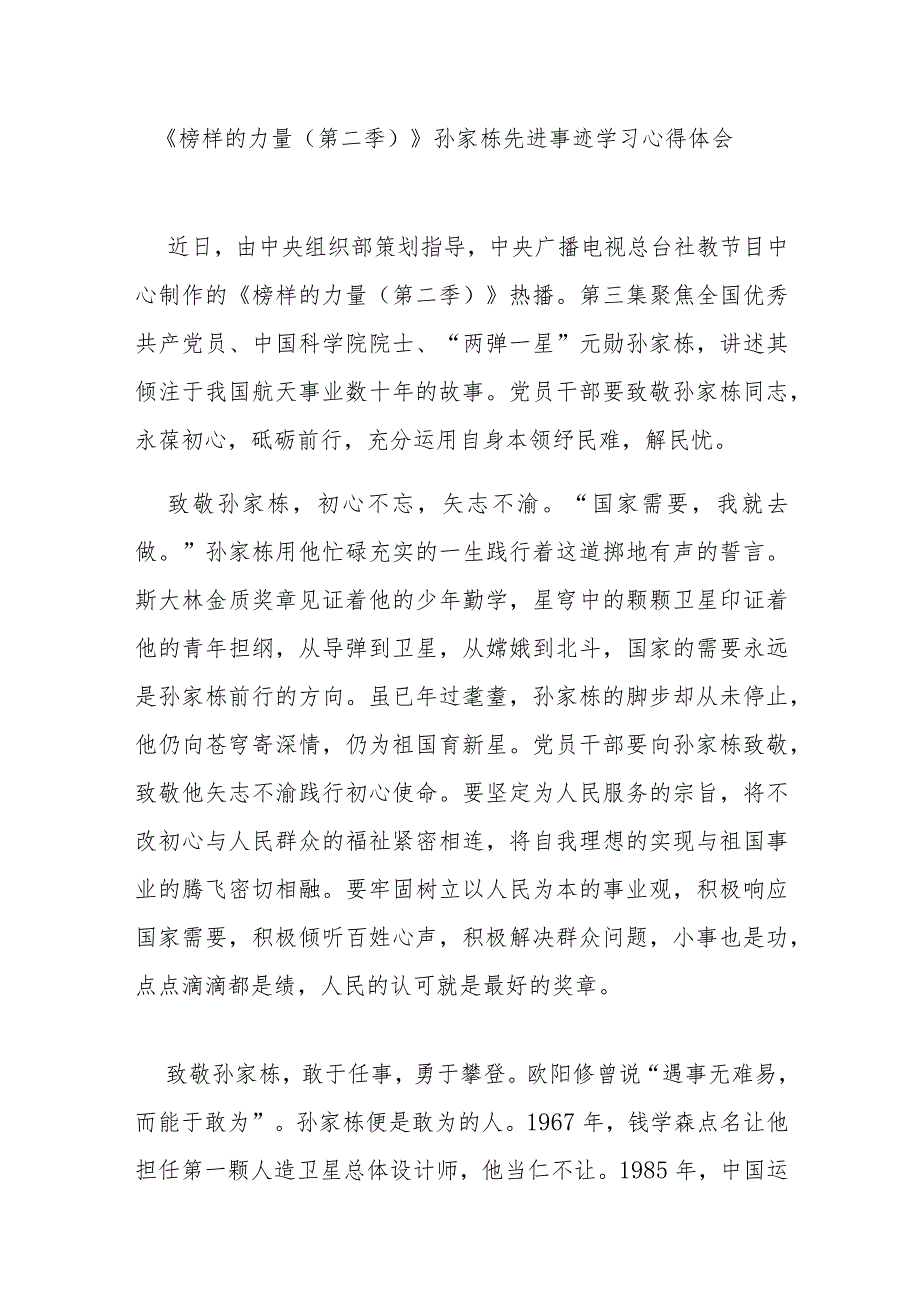 《榜样的力量（第二季）》孙家栋先进事迹学习心得体会
近日，由中央组织部策划指导，中央广播电视总台社教节目中
心制作的《榜样的力量（第二季）》热播。第三集聚焦全国优秀
共产党员、中国科学院院士、“两弹一星”元勋孙家栋，讲述其
倾注于我国航天事业数十年的故事。党员干部要致敬孙家栋同志，
永葆初心，砥砺前行，充分运用自身本领纾民难，解民忧。
致敬孙家栋，初心不忘，矢志不渝。“国家需要，我就去
做。”孙家栋用他忙碌充实的一生践行着这道掷地有声的誓言。
斯大林金质奖章见证着他的少年勤学，星穹中的颗颗卫星印证着
他的青年担纲，从导弹到卫星，从嫦娥到北斗，国家的需要永远
是孙家栋前行的方向。虽已年过耄耋，孙家栋的脚步却从未停止，
他仍向苍穹寄深情，仍为祖国育新星。党员干部要向孙家栋致敬，
致敬他矢志不渝践行初心使命。要坚定为人民服务的宗旨，将不
改初心与人民群众的福祉紧密相连，将自我理想的实现与祖国事
业的腾飞密切相融。要牢固树立以人民为本的事业观，积极响应
国家需要，积极倾听百姓心声，积极解决群众问题，小事也是功，
点点滴滴都是绩，人民的认可就是最好的奖章。
致敬孙家栋，敢于任事，勇于攀登。欧阳修曾说“遇事无难易，
而能于敢为”。孙家栋便是敢为的人。1967年，钱学森点名让他
担任第一颗人造卫星总体设计师，他当仁不让。1985年，中国运